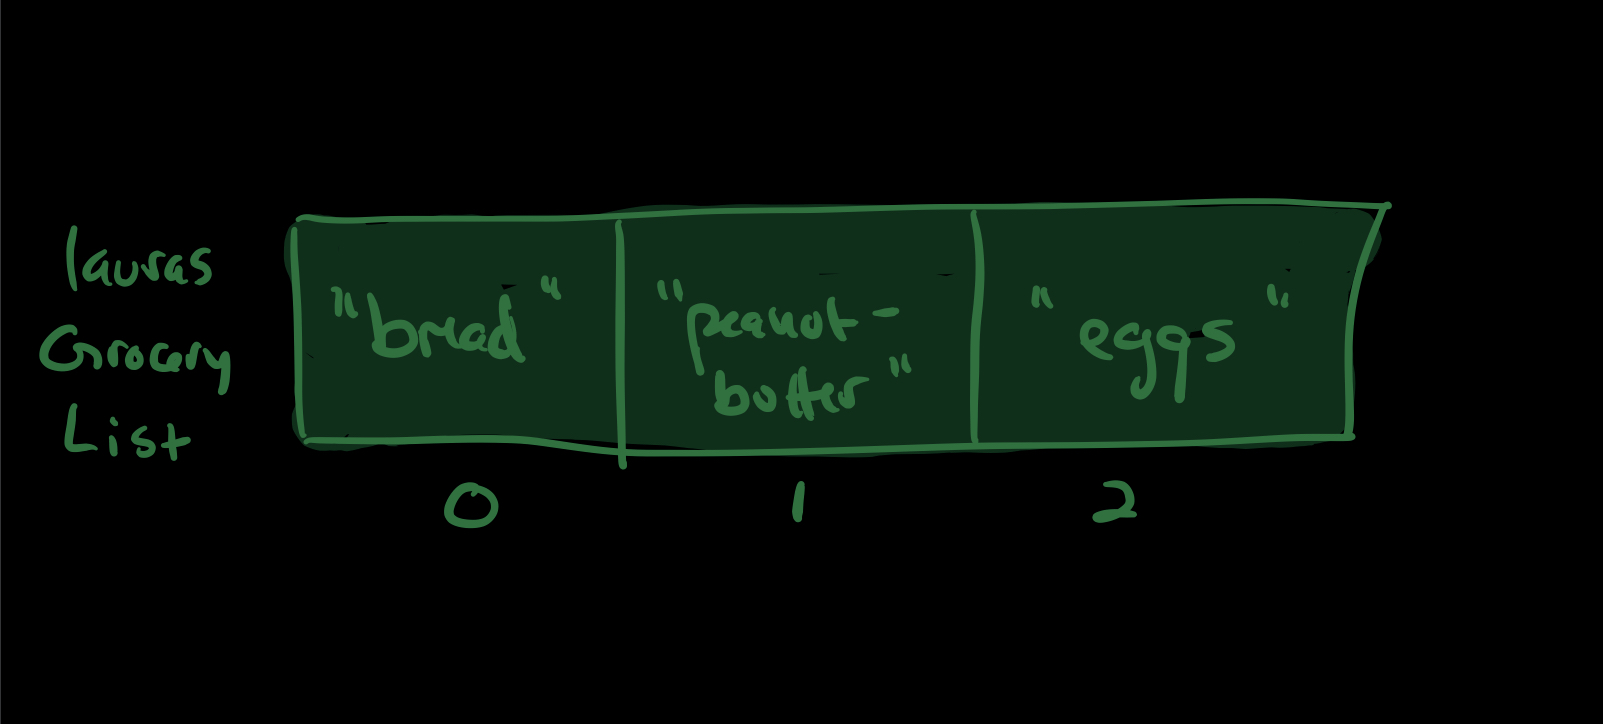 lauras
Grocery
List
"bread"
"peanut-
butter"
"eggs"
0 1 2